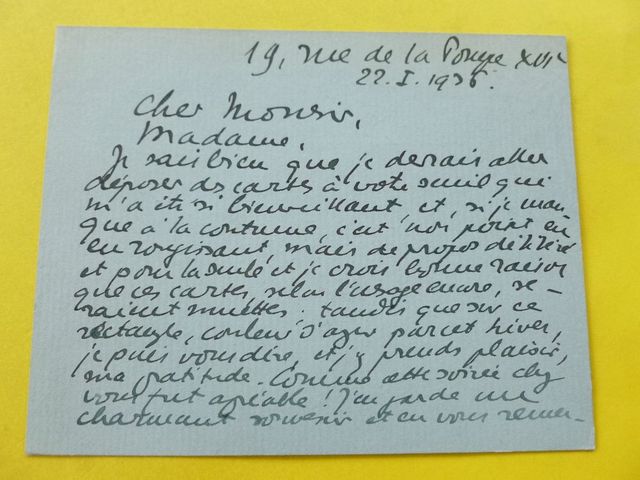 19, rue de la Pompe XVIe
22.I.1936.
Cher Monsieur,
Madame,
Je sais bien que je devrais aller
déposer des cartes à votre seuil qui
m'a été si bienveillant et, si je man-
que à la coutume, c'est non point en
en rougissant, mais de propos délibéré
et pour la seule et je crois bonne raison
que ces cartes, selon l'usage encore, se-
raient muettes. tandis que sur ce
rectangle, couleur d'azur par cet hiver,
je puis vous dire, et j'y prends plaisir,
ma gratitude. Comme cette soirée chez
vous fut agréable ! J'en garde un
charmant souvenir et en vous remer-